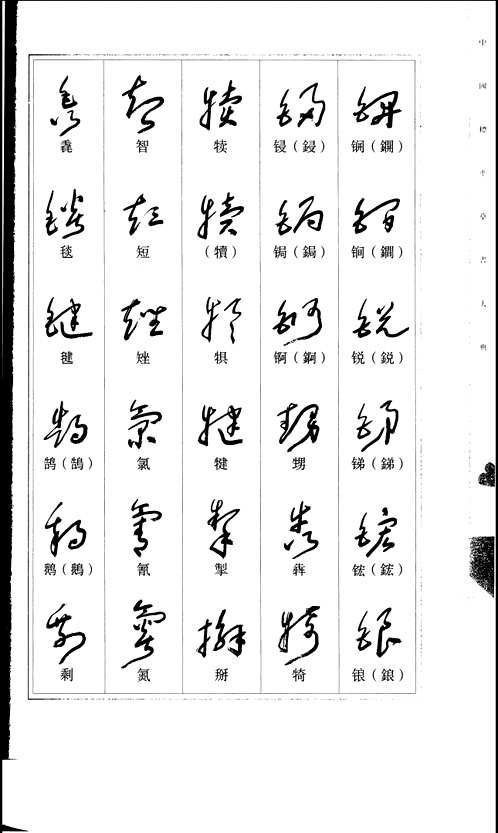 中國標準草書大典
锎（鐦）
锏（鐧）
锐（鋭）
锑（銻）
鋐（鋐）
锒（鋃）
锓（鋟）
锔（鋦）
锕（錒）
甥
犇
犄
犊
（犢）
犋
犍
掣
掰
智
短
矬
氯
氰
氮
毳
毯
毽
鹄（鵠）
鹅（鵝）
剩